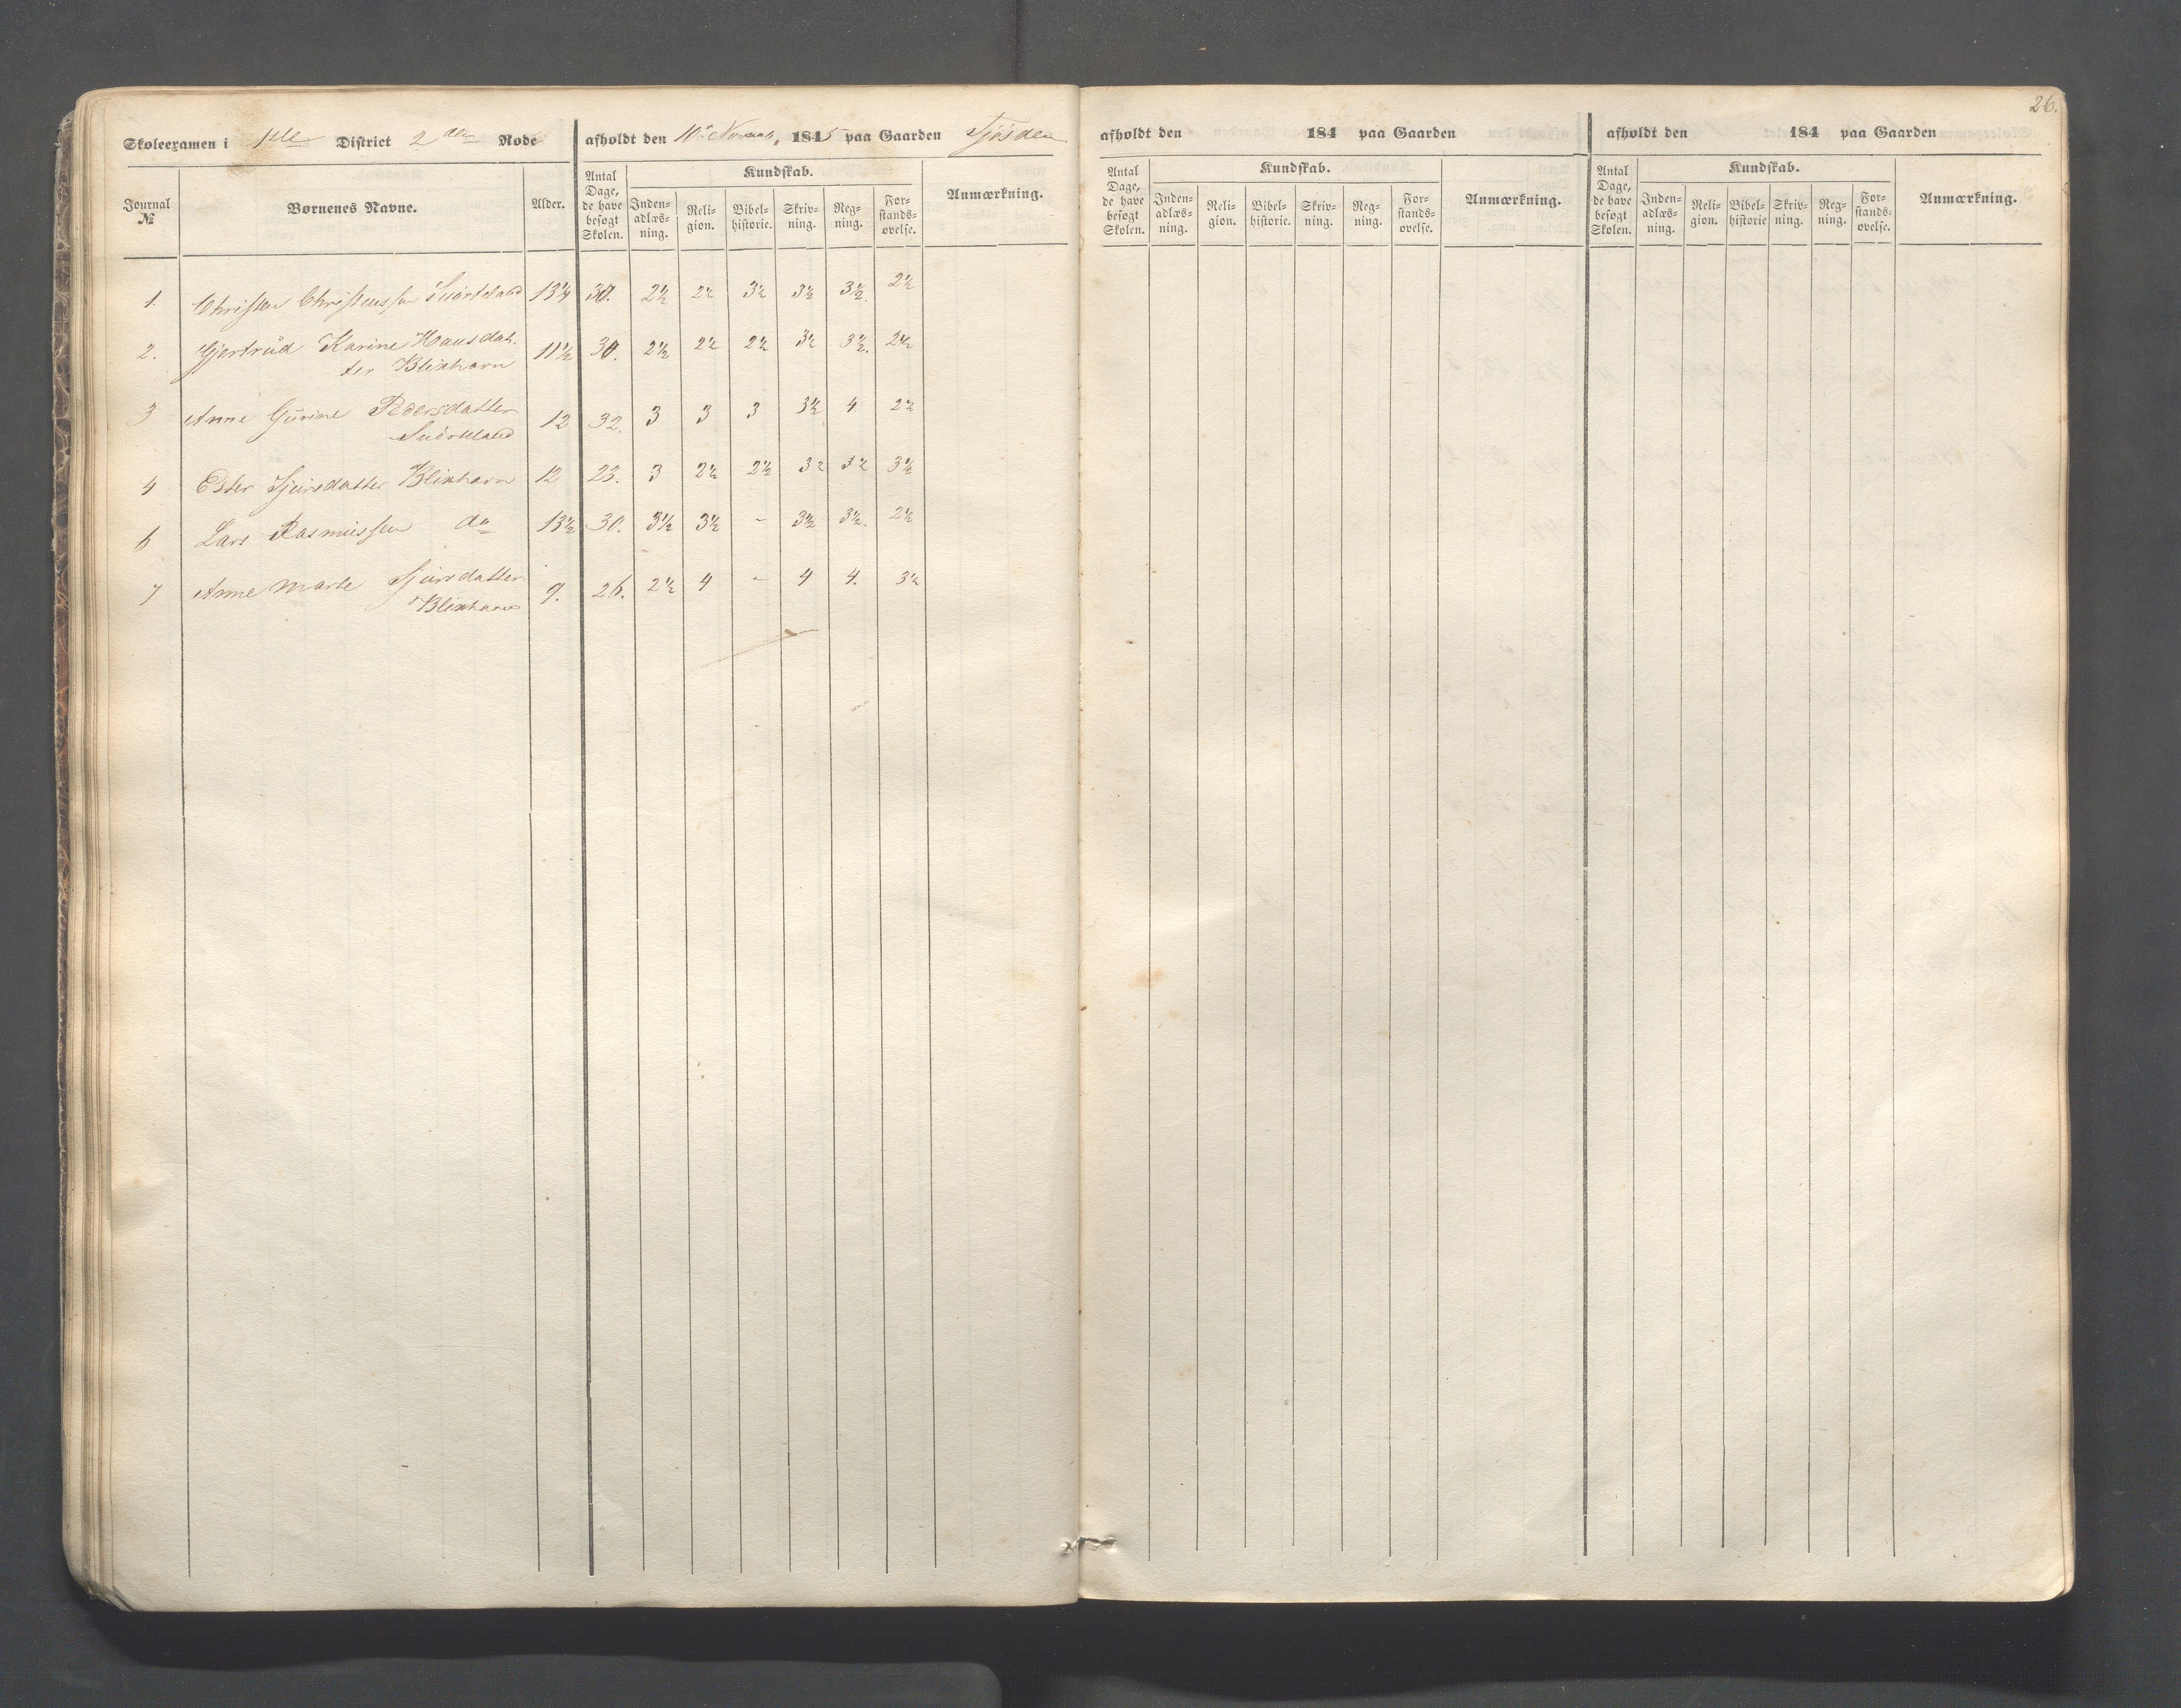 26.
Skoleexamen i 1ste District 2den Rode afholdt den 10de Novemb. 1845 paa Gaarden
Journal № Børnenes Navne. Alder. Antal Dage, de have besøgt Skolen. Kundskab. Anmærkning.
Indenadlæsning. Religion. Bibelhistorie. Skrivning. Regning. Forstandsøvelse.
1. Christen Christensen 13¼ 30. 2½ 2½ 3½ 3½ 3½. 2½
2. Gjertrud Karine Hansdat.
ter Blixhavn 11½ 30. 2½ 2½ 2½ 3½ 3½. 2½
3 Anne Gurine Pedersdatter
12 32. 3 3 3 3½ 4 2½
4 Ester Sjursdatter Blixhavn 12 23. 3 2½ 2½ 3½ 3½ 3½
6 Lars Rasmussen do 13½ 30. 3½ 3½ - 3½ 3½. 2½
7 Anne Marte Sjursdatter
Blixhavn 9. 26. 2½ 4 - 4 4. 3½
afholdt den 184 paa Gaarden
Antal Dage, de have besøgt Skolen. Kundskab. Anmærkning.
Indenadlæsning. Religion. Bibelhistorie. Skrivning. Regning. Forstandsøvelse.
afholdt den 184 paa Gaarden
Antal Dage, de have besøgt Skolen. Kundskab. Anmærkning.
Indenadlæsning. Religion. Bibelhistorie Skrivning. Regning. Forstandsøvelse.